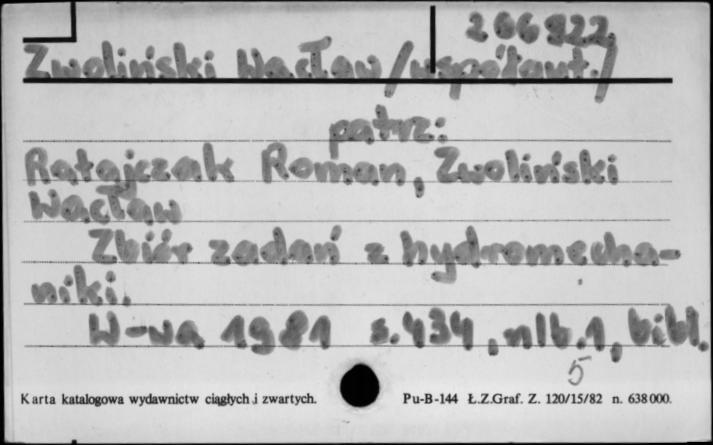 266822
Zwoliński Wacław /współaut./
patrz:
Ratajczak Roman, Zwoliński
Wacław
Zbiór zadań z hydromecha-
niki.
W-wa 1981 s.434, nlb.1, bibl.
5
Karta katalogowa wydawnictw ciągłych i zwartych. Pu-B-144 Ł.Z.Graf. Z. 120/15/82 n. 638000.